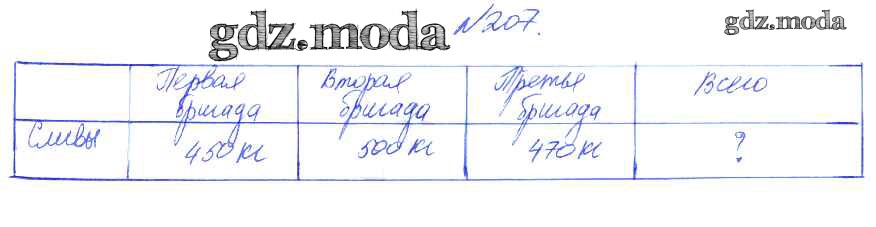 gdz.moda №207. gdz.moda
Первая Вторая Третья Всего
бригада бригада бригада
Сливы 450 кг 500 кг 470 кг ?